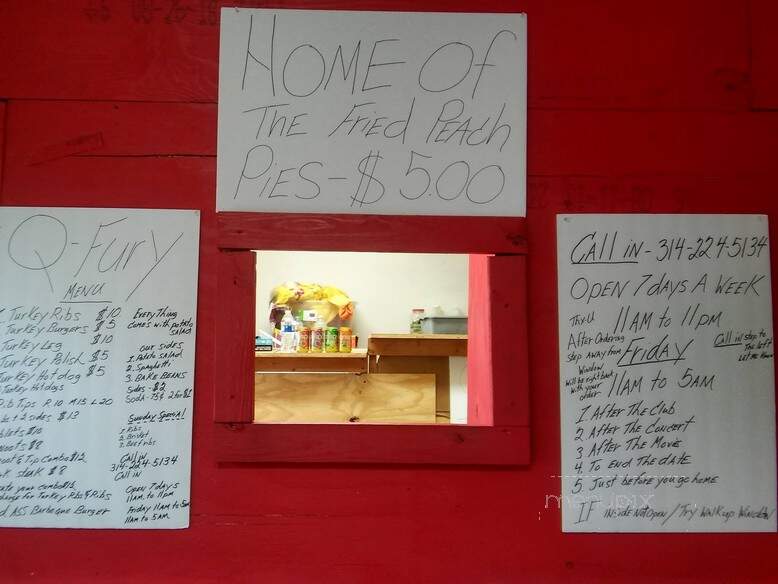 HOME OF
THE Fried PEACH
PiES - $5.00
Q-Fury
MENU
Turkey Ribs $10
Turkey Burgers $5
Turkey Leg $10
Turkey Polish $5
Turkey Hot dog $5
Turkey Hotdogs
Rib Tips R 10 M 15 L 20
2 sides $13
$8
Tip Combo $12
STEAK $8
Turkey Rbs & Ribs
ASS Barbeque Burger
EveryThing
Comes with potato
SALAD
our SiDES
1. Potato SALAD
2. Spaghetti
3. BAKE BEANS
Sides - $2
SODA - 75¢ 2 for $1
Sunday Special
1. Ribs
2. Brisket
3. Beef ribs
CALL iN
314-224-5134
CALL iN
OPEN 7 days
11AM. to 11pm
Friday 11am to 5am
11am to 5AM
CALL iN - 314-224-5134
OPEN 7 dAYS A WEEK
Thu-U
11AM to 11pm
After Ordering
step away from
Window
will be right back
with your
order
Friday
CALL in step to
The left
LET ME Know
11AM to 5AM
1. After The Club
2. After The Concert
3. After The Movie
4. To End The dATE
5. Just before you go home
IF INside Not Open / Try Walk up Window
menupix